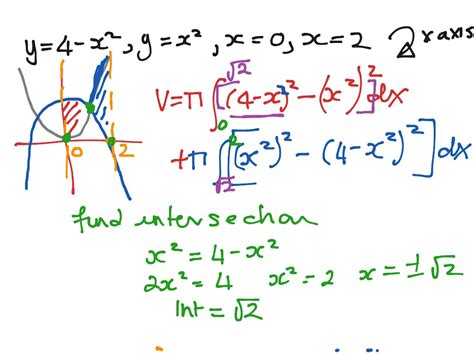 y=4-x², y=x², x=0, x=2 2 x axis
V=π ∫₀^√2 [(4-x²)² - (x²)²] dx
0 2
+π ∫_√2^2 [(x²)² - (4-x²)²] dx
find intersection
x² = 4-x²
2x² = 4 x² = 2 x = ±√2
Int = √2